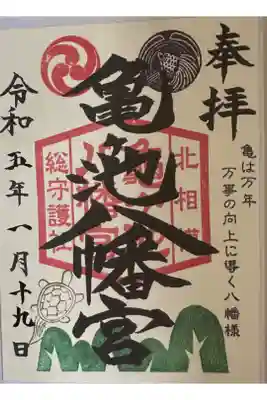 奉拝
亀は万年
万事の向上に導く八幡様
亀池八幡宮
北相模
総守護社
令和五年一月十九日